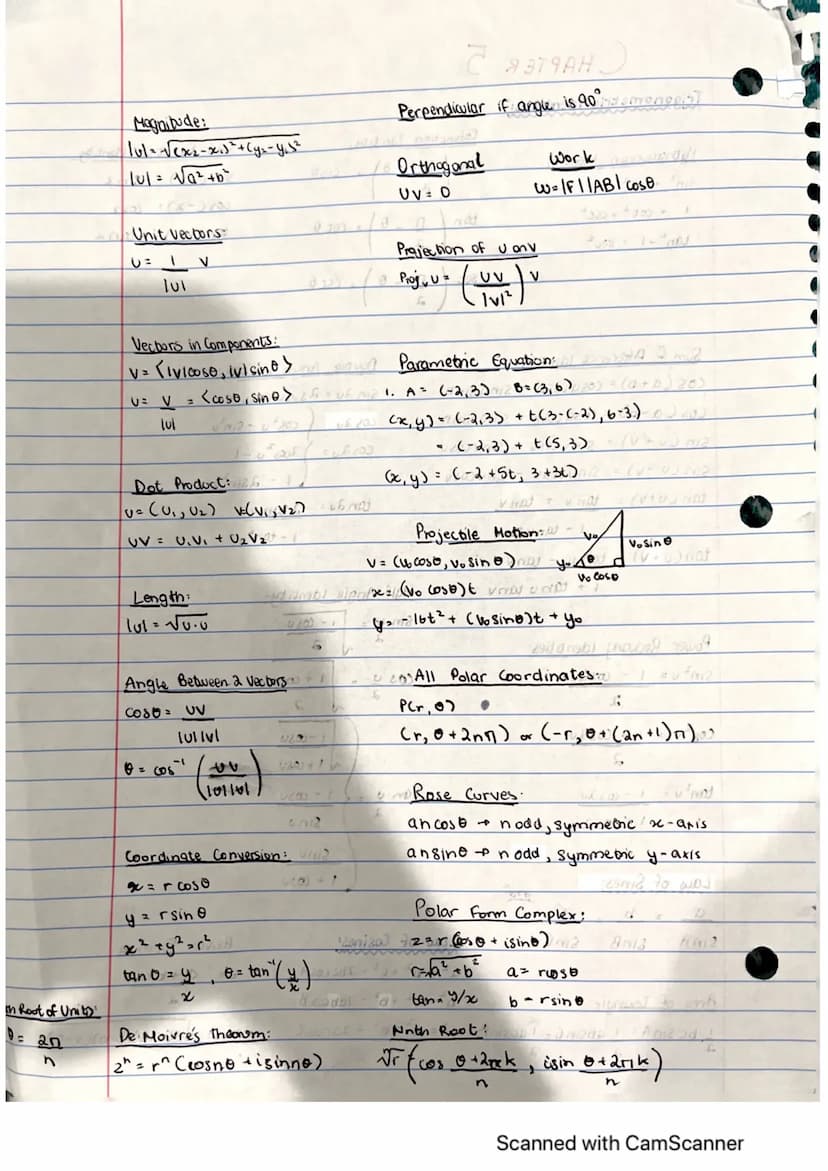 CHAPTER 5
Magnitude:
|U|=√(x₂-x₁)²+(y₂-y₁)²
|U| = √a²+b²
Unit vectors:
U = 1/|U| V
Vectors in Components:
V = <|V|cosθ, |V|sinθ>
U = V/|U| = <cosθ, sinθ>
Dot Product:
U=(U₁,U₂) V=(V₁,V₂)
UV = U₁V₁ + U₂V₂
Length:
|U| = √U·U
Angle Between 2 Vectors
cosθ = UV/|U||V|
θ = cos⁻¹ (UV/|U||V|)
Coordinate Conversion:
x = r cosθ
y = r sinθ
x² + y² = r²
tanθ = y/x, θ = tan⁻¹(y/x)
nth Root of Unity:
θ = 2π/n
De Moivre's Theorum:
zⁿ = rⁿ (cosnθ + isinnθ)
Perpendicular if angle is 90°
Orthogonal
UV = 0
Work
W = |F||AB| cosθ
Projection of U onv
Projᵥ U = (UV/|V|²) V
Parametric Equation:
1. A = (-2,3) B = (3,6)
(x,y) = (-2,3) + t(3-(-2), 6-3)
= (-2,3) + t(5,3)
(x,y) = (-2+5t, 3+3t)
Projectile Motion:
V = (V₀cosθ, V₀sinθ)
V₀
V₀ sinθ
y₀
θ
V₀ cosθ
x = (V₀ cosθ)t
y = -16t² + (V₀sinθ)t + y₀
All Polar Coordinates:
P(r,θ)
(r, θ+2nπ) or (-r, θ+(2n+1)π)
Rose Curves:
ancosθ → n odd, symmetric x-axis
ansinθ → n odd, symmetric y-axis
Polar Form Complex:
z = r(cosθ + isinθ)
r=√a²+b² a = rcosθ
tan = y/x b = rsinθ
Nnth Root:
√r (cos θ+2πk/n, isin θ+2πk/n)
Scanned with CamScanner